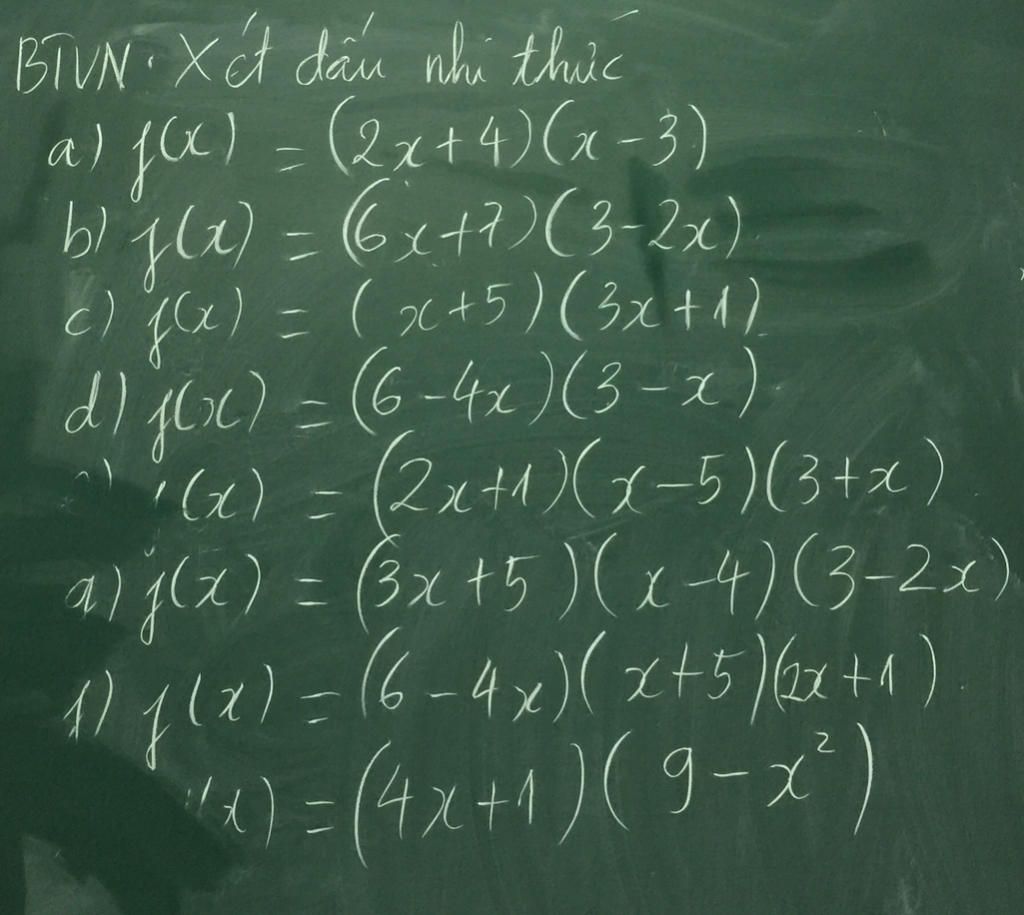 BTVN. Xét dấu nhi thức
a) f(x) = (2x+4)(x-3)
b) f(x) = (6x+7)(3-2x)
c) f(x) = (x+5)(3x+1)
d) f(x) = (6-4x)(3-x)
(x) = (2x+1)(x-5)(3+x)
a) f(x) = (3x+5)(x-4)(3-2x)
f) f(x) = (6-4x)(x+5)(2x+1)
(x) = (4x+1)(9-x²)